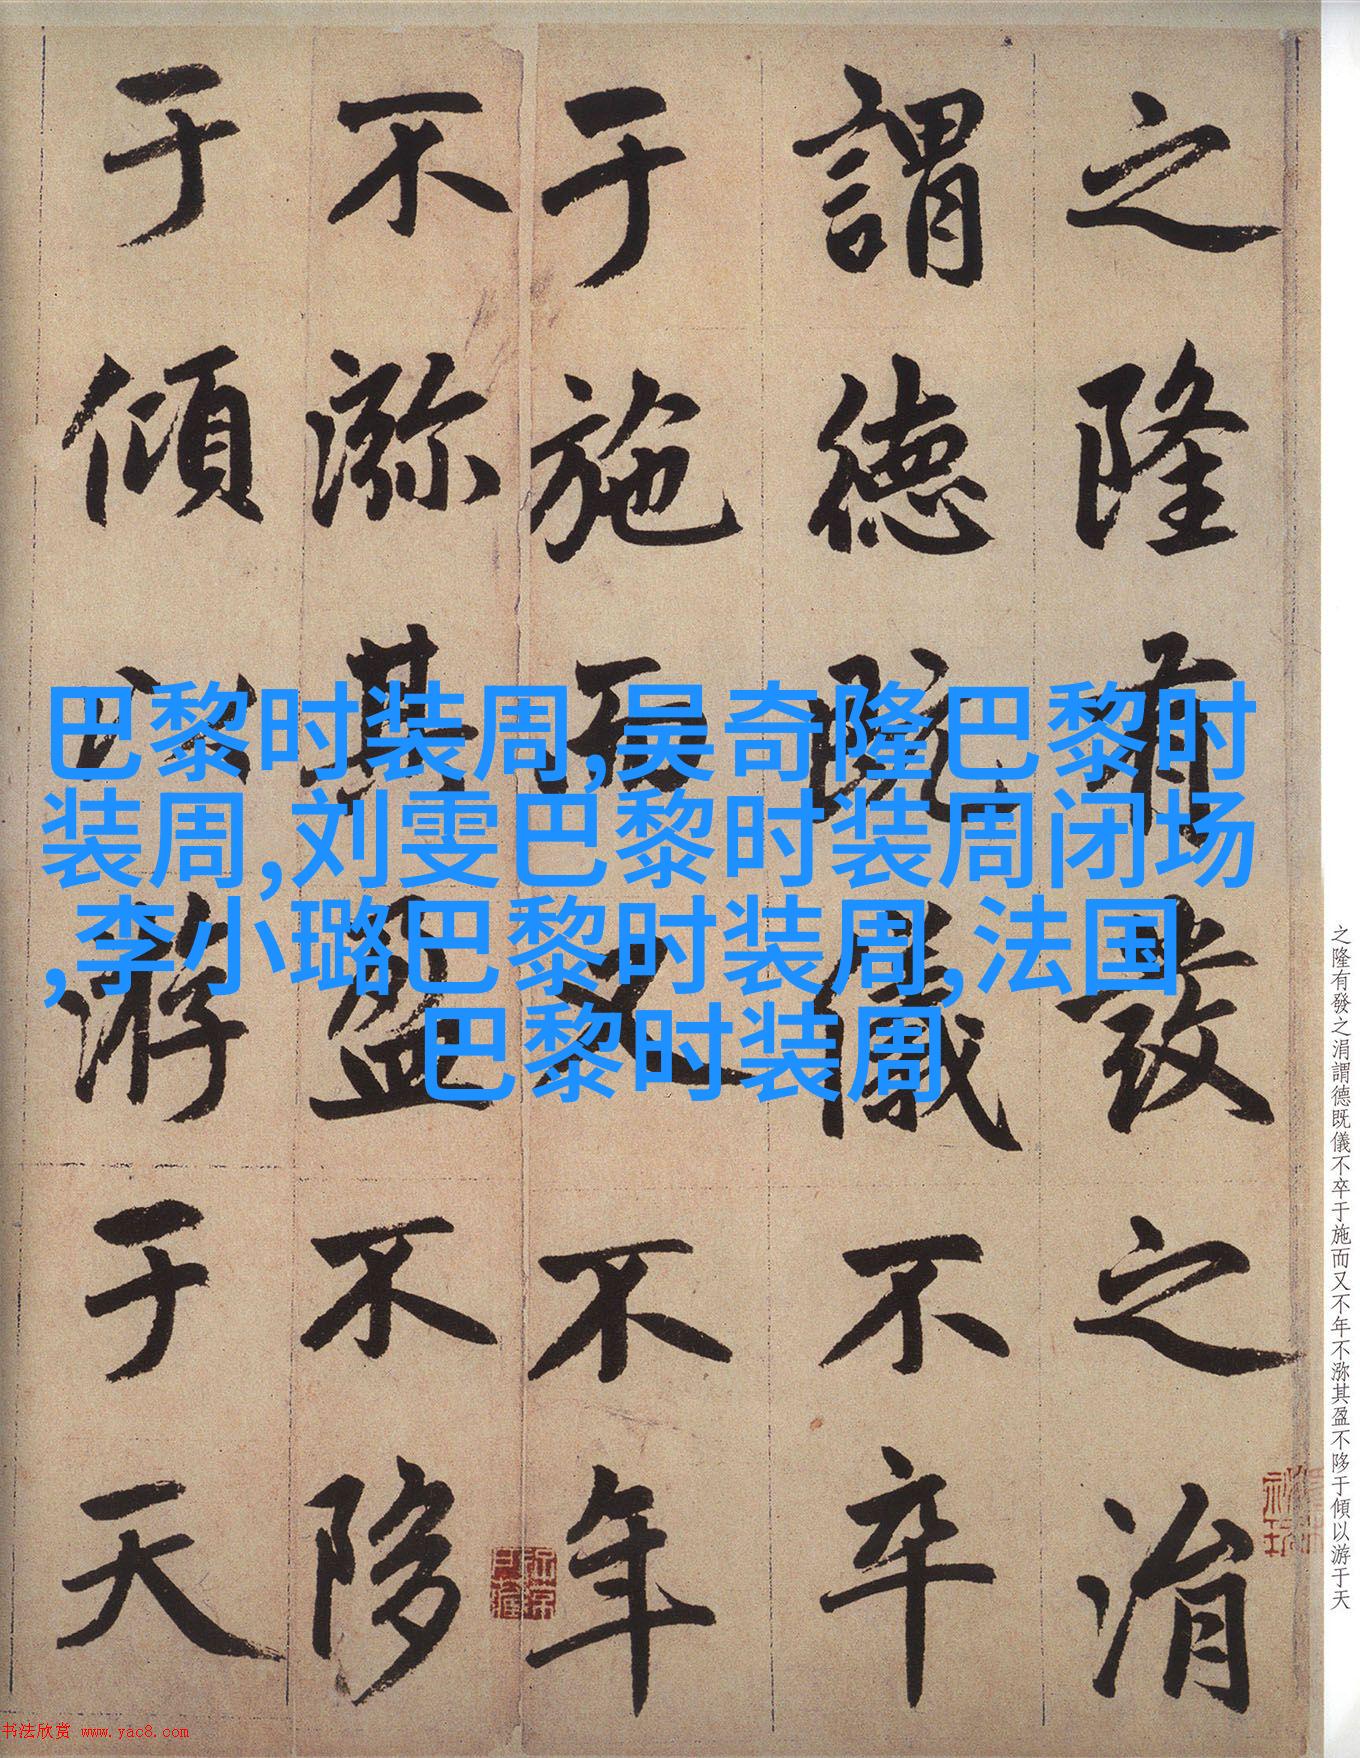 之隆有發之涓
謂德既儀不卒
于施而又不年
不㳽其盈不陊
于傾以游于天
巴黎时装周,吴奇隆巴黎时
装周,刘雯巴黎时装周闭场
,李小璐巴黎时装周,法国
巴黎时装周
之隆有發之涓謂德既儀不卒于施而又不年不㳽其盈不陊于傾以游于天
书法欣赏 www.yac8.com